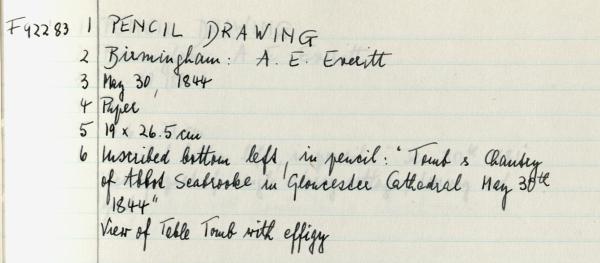 F92283 1 PENCIL DRAWING
2 Birmingham: A. E. Everitt
3 May 30, 1844
4 Paper
5 19 x 26.5 cm
6 Inscribed bottom left, in pencil: "Tomb & Chantry
of Abbot Seabrooke in Gloucester Cathedral May 30th
1844"
View of Table Tomb with effigy